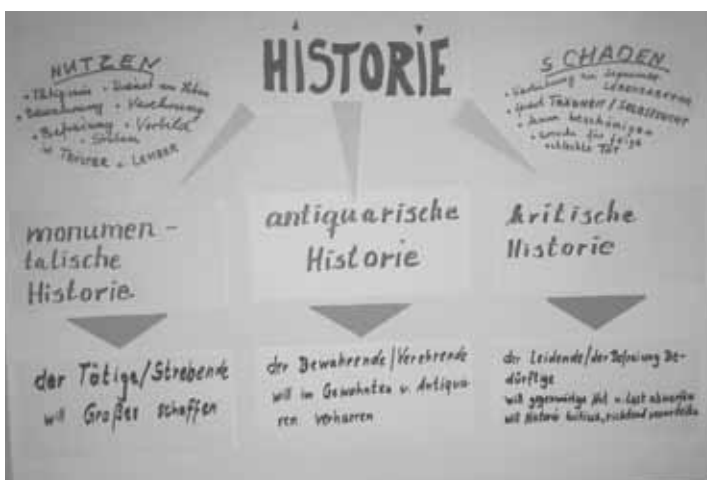 HISTORIE
NUTZEN
• Tätigsein • Dienst am Leben
• Bewahrung • Verehrung
• Befreiung • Vorbild
• TRÖSTER • LEHRER
SCHADEN
TRÄGHEIT / SELBSTSUCHT
beschönigen
für feige
schlechte TAT
monumen -
talische
Historie
antiquarische
Historie
kritische
Historie
der Tätige/Strebende
will Großes schaffen
der Bewahrende/Verehrende
will im Gewohnten u. Antiqua
ren verharren
der Leidende/der Befreiung Be-
dürftige
will gegenwärtige Not u. Last abwerfen
will Historie kritisch, richtend